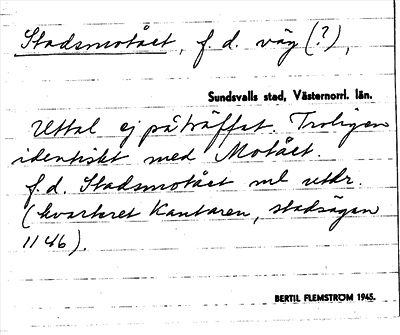 Stadsmotået, f. d. väg (?),
Sundsvalls stad, Västernorrl. län.
Uttal ej påträffat. Troligen
identiskt med Motået.
f. d. Stadsmotået ml utdr.
(kvarteret Kantaren, stadsägan
1146).
BERTIL FLEMSTRÖM 1945.